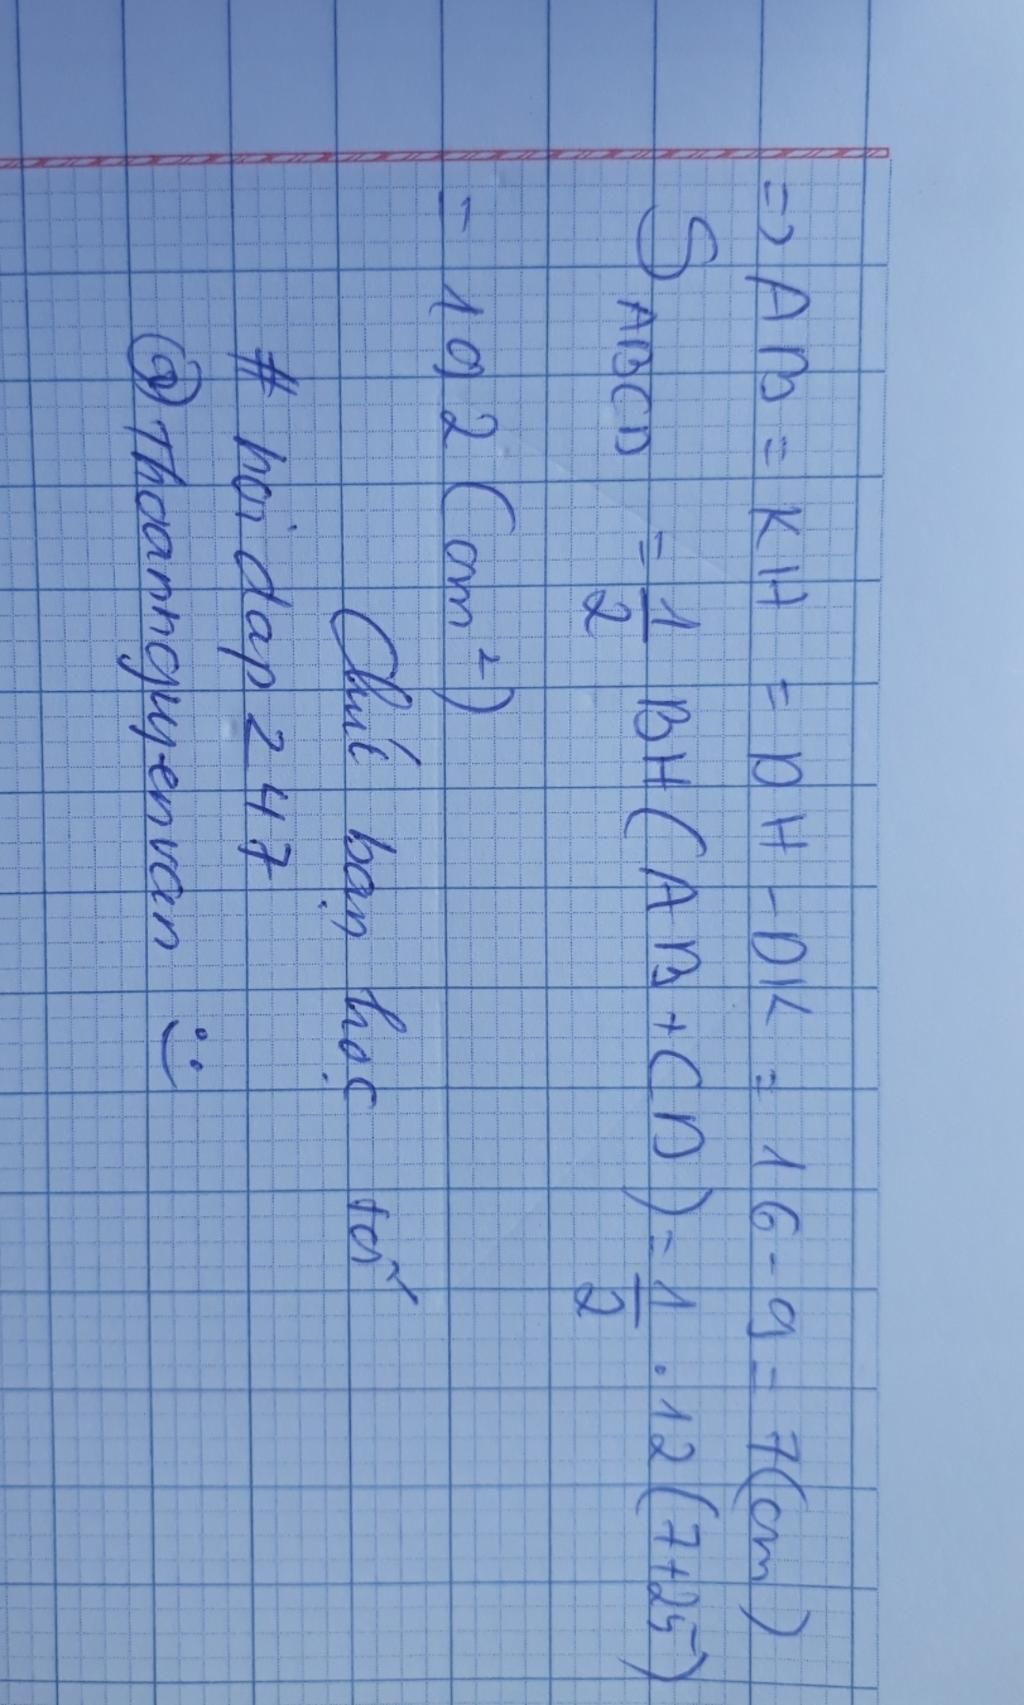 => AB = KH = DH - DK = 16 - 9 = 7 (cm)
S ABCD = 1/2 BH (AB + CD) = 1/2 . 12 (7 + 25)
= 192 (cm²)
Chúc bạn học tốt
# hoidap247
@Thoannguyenvan :)